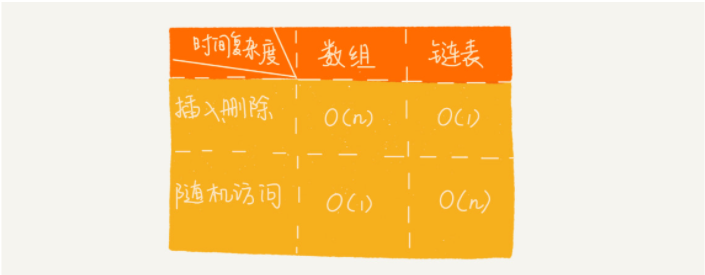 时间复杂度 数组 链表
插入删除 O(n) O(1)
随机访问 O(1) O(n)